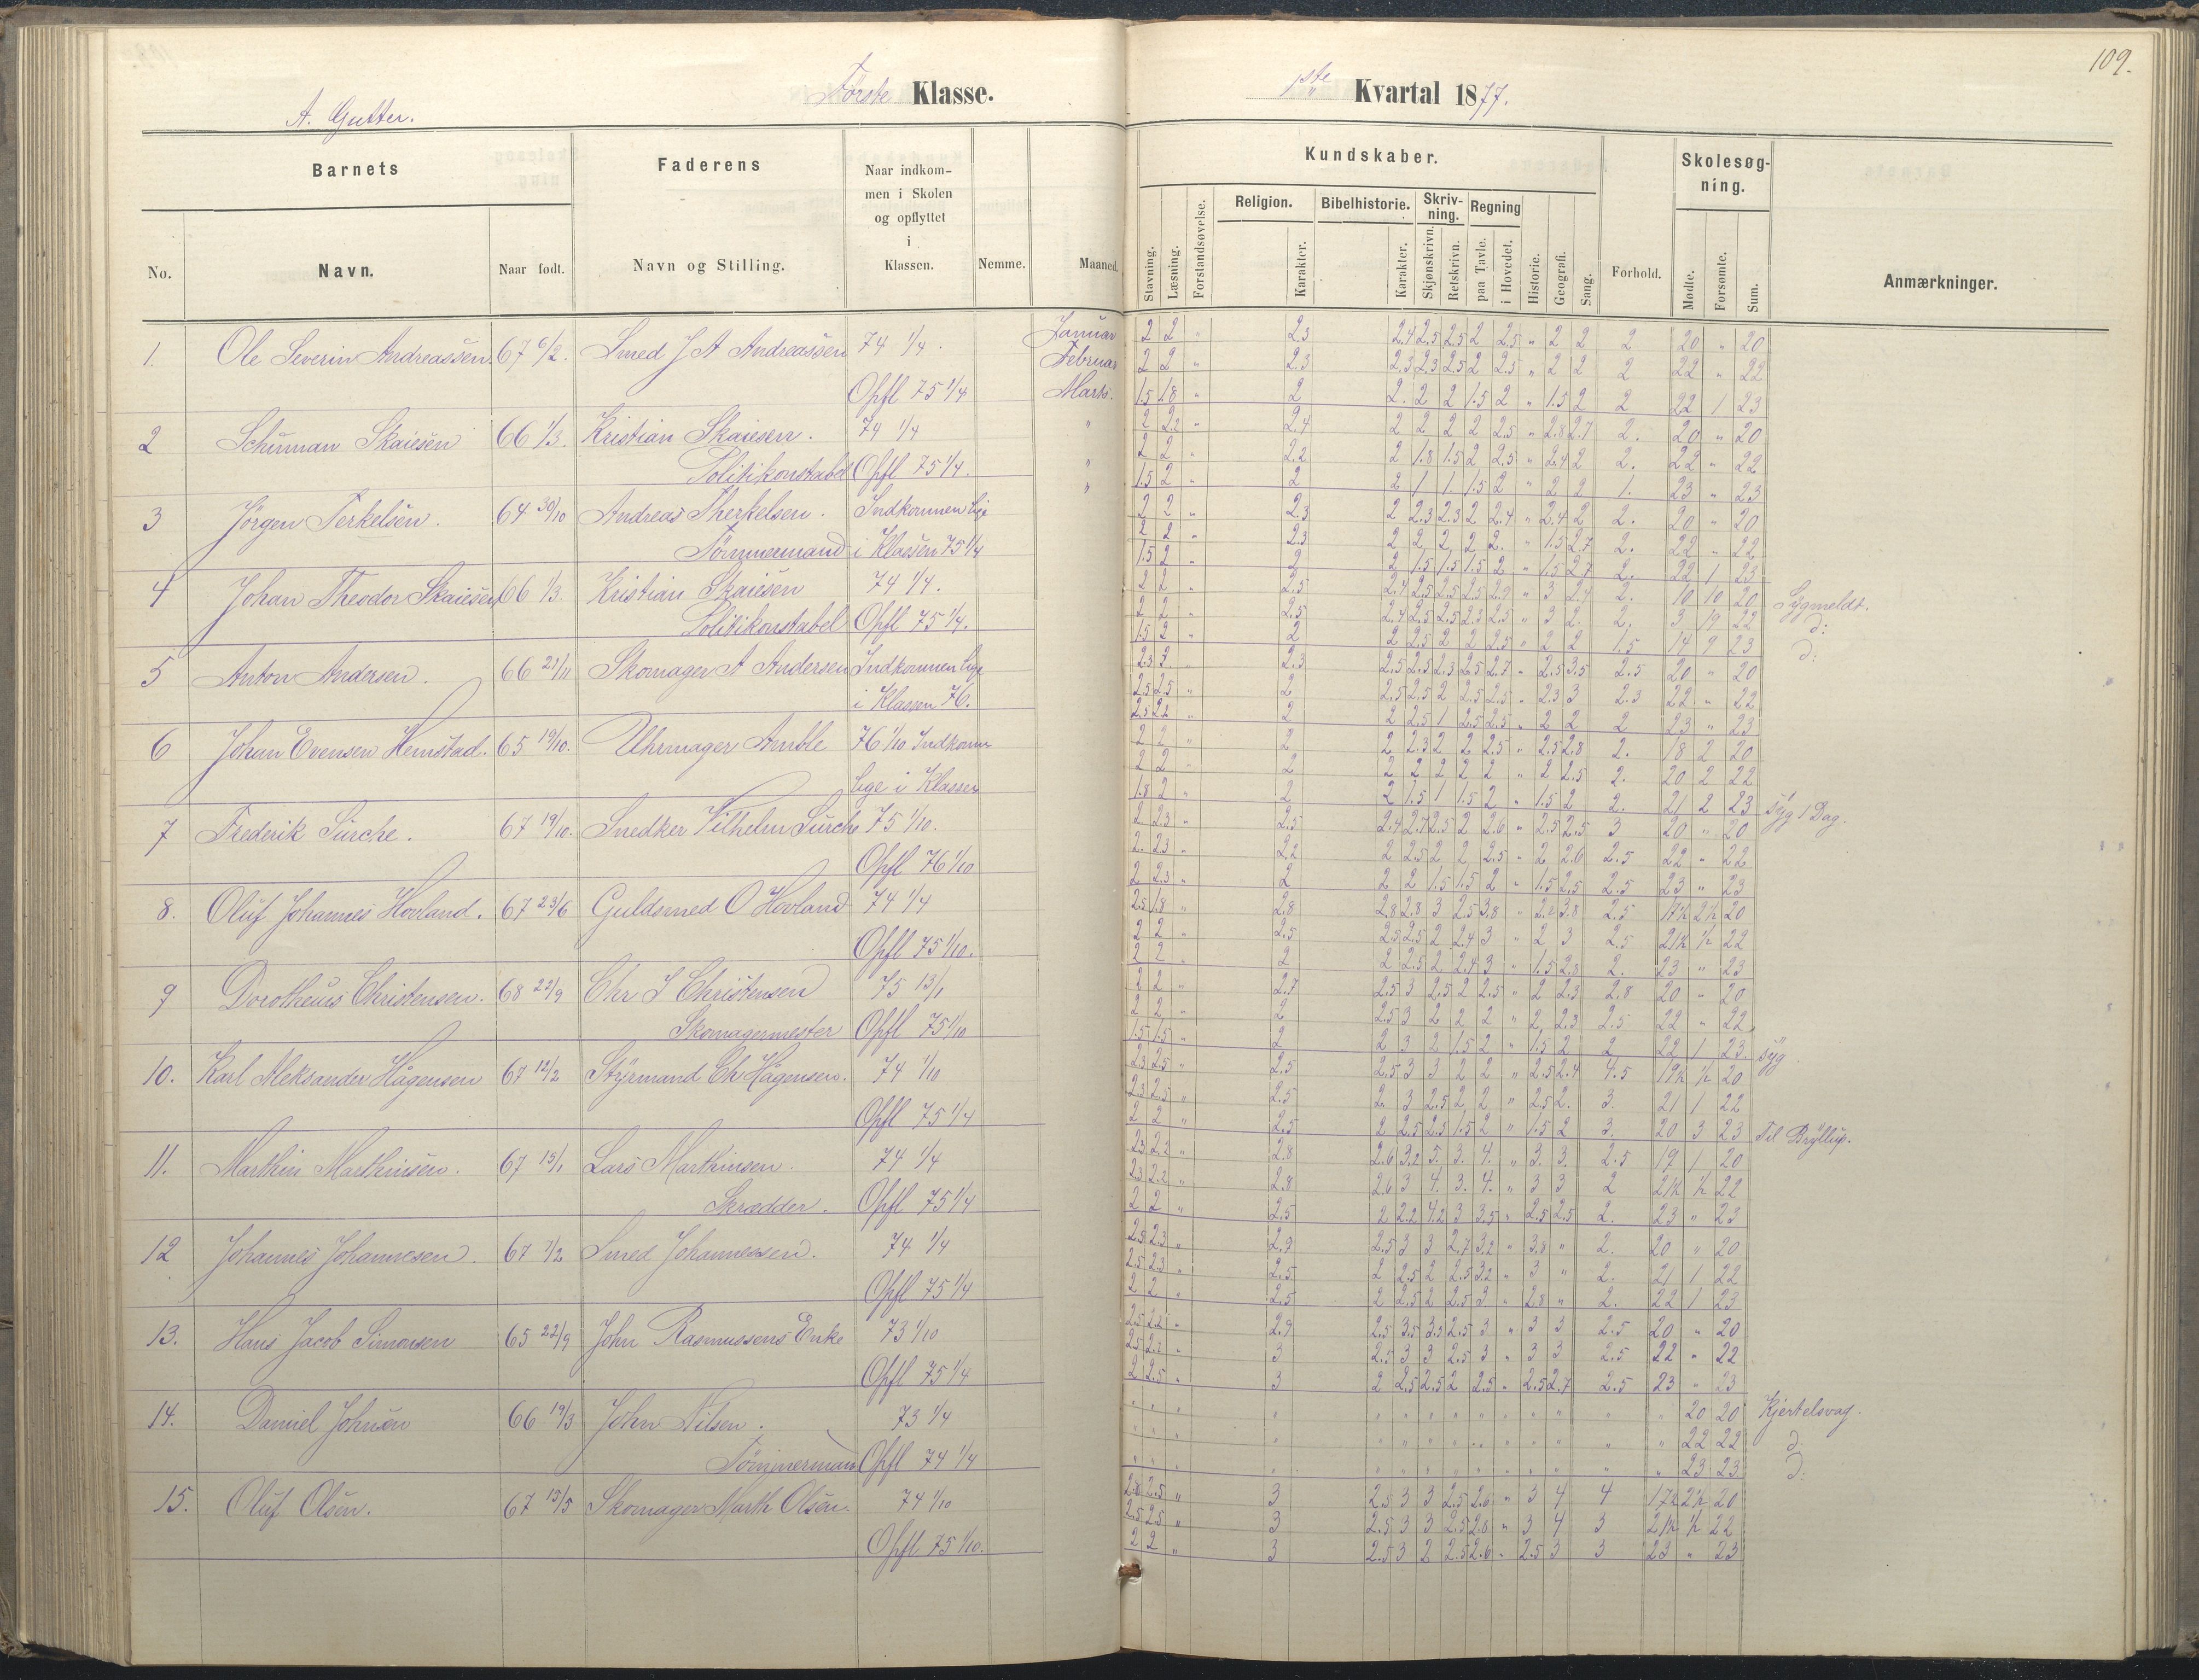 109.
Første Klasse.
1ste Kvartal 1877.
A. Gutter.
Barnets
Faderens
Naar indkom-
men i Skolen
og opflyttet
i
Klassen.
Kundskaber.
Skolesøg-
ning.
No.
Navn.
Naar født.
Navn og Stilling.
Nemme.
Maaned.
Stavning.
Læsning.
Forstandsøvelse.
Religion.
Karakter.
Bibelhistorie.
Karakter.
Skriv-
ning.
Skjønskrivn.
Retskrivn.
Regning
paa Tavle.
i Hovedet.
Historie.
Geografi.
Sang.
Forhold.
Mødte.
Forsømte.
Sum.
Anmærkninger.
1. Ole Severin Andreassen. 67 6/2. Smed J A Andreassen 74 1/4. Januar 2 2 " 2.3 2.4 2.5 2.5 2 2.5 " 2 2 2 20 " 20
Februar 2 2 " 2.3 2.3 2.3 2.5 2 2.5 " 2 2 2 22 " 22
Opfl 75 1/4 Marts. 1.5 1.8 " 2 2. 2 2 1.5 2 " 1.5 2 2 22 1 23
2 Schuman Skaiesen 66 1/3. Kristian Skaiesen. 74 1/4 " 2 2.2 " 2.4 2 2 2 2 2.5 " 2.8 2.7 2. 20 " 20
Politikonstabel Opfl 75 1/4. " 2 2 " 2.2 2 1.8 1.5 2 2.5 " 2.4 2 2. 22 " 22
" 1.5 2 " 2 2 1 1. 1.5 2 " 2 2 1. 23 " 23
3 Jörgen Terkelsen. 64 30/10 Andreas Therkelsen. Indkommen lige 2 2 " 2.3 2 2.3 2.3 2 2.4 " 2.4 2 2. 20 " 20
Tömmermand i Klassen 75 1/4 2 2 " 2.3 2 2 2 2 2. " 1.5 2.7 2. 22 " 22
1.5 2 " 2 2 1.5 1.5 1.5 2 " 1.5 2.7 2. 22 1 23
4 Johan Theodor Skaiesen 66 1/3. Kristian Skaiesen 74 1/4. 2 2 " 2.5 2.4 2.5 2.5 2.5 2.9 " 3 2.4 2. 10 10 20 Sygmeldt.
Politikonstabel Opfl 75 1/4. 2 2 " 2.5 2.4 2.5 2.5 2.3 2.5 " 3 2. 2. 3 19 22 d:
1.5 2 " 2 2 2.5 2 2 2.5 " 2 2 1.5 14 9 23 d:
5 Anton Andersen. 66 21/11 Skomager A Andersen Indkommen lige 2.3 3 " 2.3 2.5 2.5 2.3 2.5 2.7 " 2.5 3.5 2.5 20 " 20
i Klassen 76. 2.5 2.5 " 2 2.5 2.5 2 2.5 2.5 " 2.3 3 2.3 22 " 22
2.5 2.2 " 2 2 2.5 1 2.5 2.5 " 2 2 2 23 " 23
6 Johan Evensen Hemstad. 65 19/10. Uhrmager Amble 76 1/10 Indkomm 2 2 " 2 2 2.3 2 2 2.5 " 2.5 2.8 2. 18 2 20
lige i Klassen 2 2 " 2 2 2 2 2 2 " 2 2.5 2. 20 2 22
1.8 2 " 2 2 1.5 1 1.5 2 " 1.5 2 2. 21 2 23 syg 1 Dag.
7 Frederik Surche. 67 19/10. Snedker Vilhelm Surche 75 1/10. 2 2.3 " 2.5 2.4 2.7 2.5 2 2.6 " 2.5 2.5 3 20 " 20
Opfl 76 1/10 2. 2.3 " 2.2 2 2.5 2 2 2.5 " 2 2.6 2.5 22 " 22
2 2.3 " 2 2 2 1.5 1.5 2 " 1.5 2.5 2.5 23 " 23
8. Oluf Johannes Hovland. 67 23/6 Guldsmed O Hovland 74 1/4 2.5 1.8 " 2.8 2.8 2.8 3 2.5 3.8 " 2.2 3.8 2.5 17½ 2½ 20
Opfl 75 1/10. 2 2 " 2.5 2.5 2.5 2 2.4 3 " 2 3 2.5 21½ ½ 22
2 2 " 2 2 2.5 2 2.4 3 " 1.5 2.8 2. 23 " 23
9 Dorotheus Christensen. 68 22/9 Chr I Christensen 75 13/1 2 2 " 2.7 2.5 3 2.5 2 2.5 " 2 2.3 2.8 20 " 20
Skomagermester Opfl 75 1/10 2 2 " 2 2.5 3 2 2 2 " 2 2.3 2.5 22 " 22
1.5 1.5 " 2 2 3 2 1.5 2 " 1.5 2 2 22 1 23. syg
10. Karl Aleksander Hågensen 67 12/2 Styrmand Ch Hågensen. 74 1/10 2.3 2.5 " 2.5 2.5 3 3 2 2 " 2.5 2.4 4.5 19½ ½ 20
Opfl 75 1/4 2.3 2.5 " 2.5 2 3 2.5 2 2 " 2.5 2. 3. 21 1 22
2 2 " 2.5 2 2.5 2.5 1.5 2 " 1.5 2 3. 20 3 23 til Bryllup.
11. Marthin Marthinsen. 67 15/1 Lars Marthinsen. 74 1/4 2.3 2.2 " 2.8 2.6 3.2 5. 3. 4. " 3. 3. 2.5 19 1 20
Skrædder. Opfl 75 1/4 2.3 2.2 " 2.8 2.6 3 4. 3. 4. " 3 3 2 21½ ½ 22
2 2 " 2.5 2 2.2 4.2 3 3.5 " 2.5 2.5 2. 23 " 23
12 Johannes Johannesen. 67 7/2 Smed Johannessen. 74 1/4 2.5 2.3 " 2.9 2.5 3 3 2.7 3.2 " 3.8 " 2. 20 " 20
Opfl 75 1/4 2.5 2.3 " 2.5 2 2.5 2 2.5 3.2 " 3 " 2. 21 1 22
2 2 " 2.5 2 2.5 2 2.5 3 " 2.8 " 2. 22 1 23
13. Hans Jacob Simonsen 65 22/9 John Rasmussens Enke 73 1/10 2.5 2.2 " 2.9 2.5 3.5 3.5 2.5 3 " 3 3 2.5 20 " 20
Opfl 75 1/4 2.5 2.2 " 3 2.5 3 3 2.5 3 " 3 3 2.5 22 " 22
2 2.5 " 3 2 2.5 2.5 2 2.5 " 2.5 2.7 2.5 23 " 23
14. Daniel Johnsen 66 19/3 John Nilsen. 73 1/4 " " " " " " " " " " " " " " 20 20 Kjertelsvag.
Tömmermand Opfl 74 1/4 " " " " " " " " " " " " " " 22 22 d.
" " " " " " " " " " " " " " 23 23 d:
15. Oluf Olsen. 67 15/5 Skomager Marth Olsen. 74 1/10 2.6 2.5 " 3 2.5 3 3 2.5 2.6 " 3 4 4 17½ 2½ 20
Opfl. 75 1/10. 2.5 2.5 " 3 2.5 3 3 2.5 2.8 " 3 4 3 21½ ½ 22
2 2 " 3 2.5 3 2 2.5 2.6 " 2.5 3 3 23 " 23